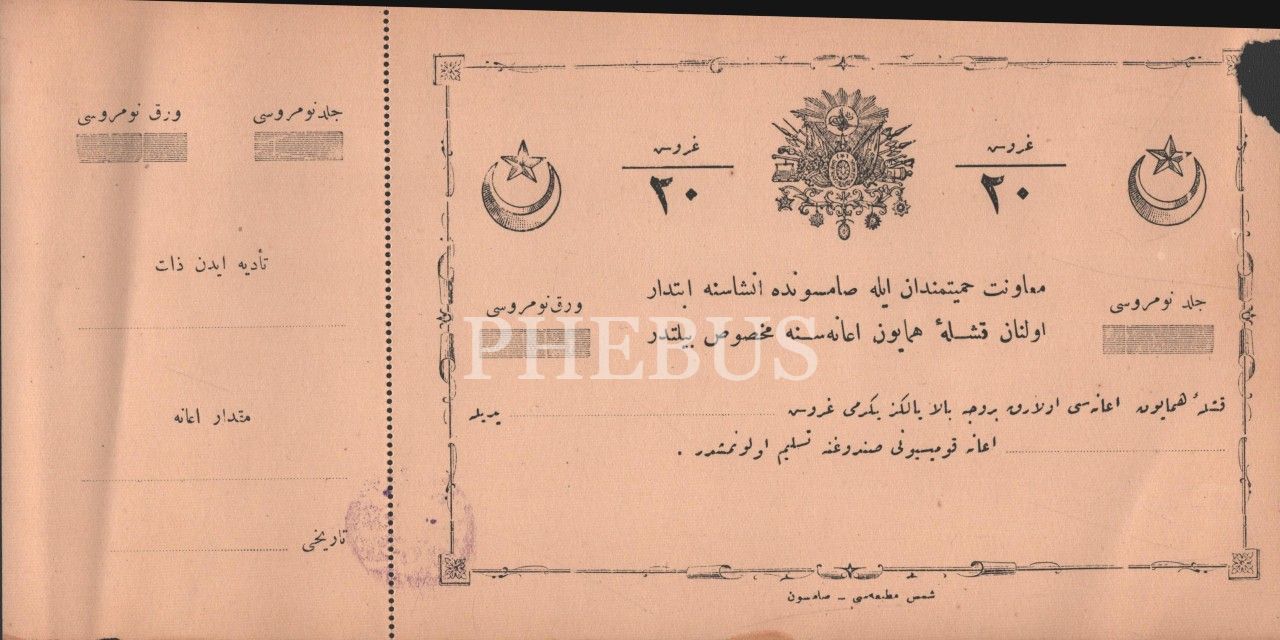 جلد نومروسی
ورق نومروسی
تأدیه ایدن ذات
مقدار اعانه
تاریخی
غروس
٢٠
غروس
٢٠
معاونت حمیتمندان ایله صامسونده انشاسنه ابتدار
اولنان قشلهٔ همایون اعانه‌سنه مخصوص بیلتدر
جلد نومروسی
ورق نومروسی
قشلهٔ همایون اعانه‌سی اولارق بروجه بالا یالکز یکرمی غروس یدیله
اعانه قومیسیونی صندوغنه تسلیم اولونمشدر .
شمس مطبعه‌سی – صامسون
PHEBUS